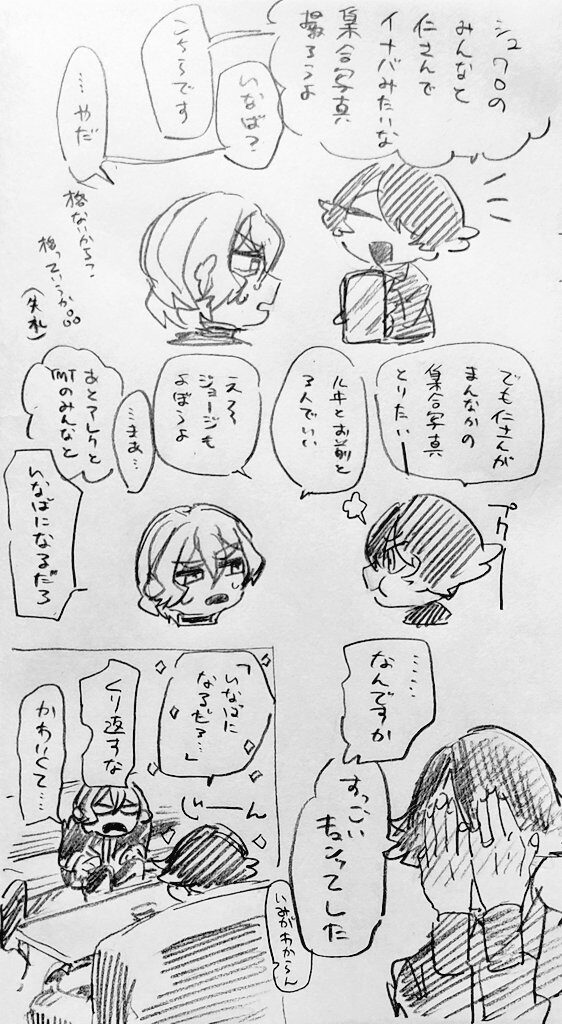 シュワロの
みんなと
仁さんで
イナバみたいな
集合写真
撮ろうよ
いなば?
こちらです
…やだ
格ないからっ?
格っていうか。。。
(失礼)
でも仁さんが
まんなかの
集合写真
とりたいー
プクー
ルキとお前と
3人でいい
えー
ジョージも
よぼうよ
…まあ…
あとアレクと
TMTのみんなと
いなばになるだろ
………
なんですか
すっごい
キュンってした
「いなばに
なるだろ…」
じーん
くり返すな
かわいくて…
いみがわからん